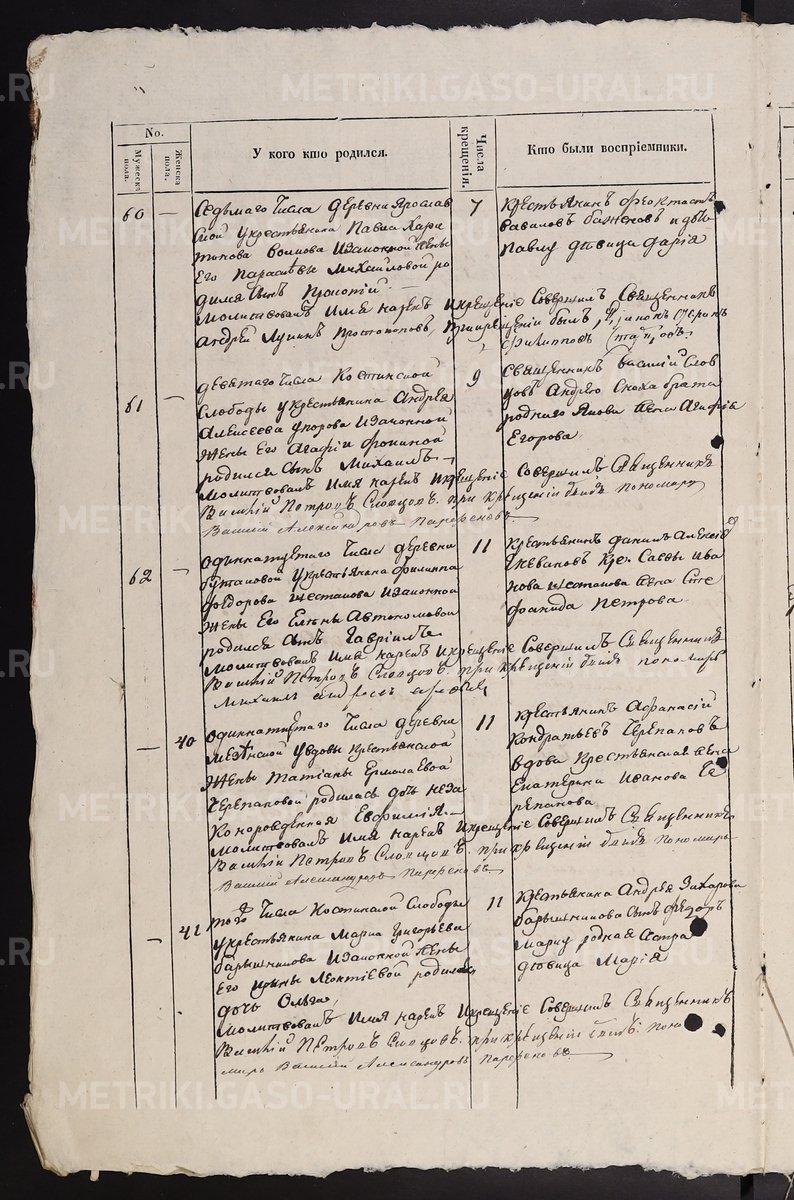 No.
Мужеска пола.
Женска пола.
У кого кто родился.
Числа крещенія.
Кто были воспріемники.
60 —
Седьмаго Числа деревни Ярослав
ской укрестьянина Павла Хари
тонова Изаконной жены
Его Парасковьи Михайловой ро
дился сынъ
Молитвовалъ Имя нарекъ Икрещеніе Совершилъ Священникъ
Андрей Лукинъ Простопоповъ, Прикрещеніи былъ
7
Крестьянинъ Феоктистъ
Вавиловъ Баженовъ идочь
Павлу дѣвица Дарія
61 —
девятаго Числа Костинской
Слободы укрестьянина Андрея
Алексеева упорова Изаконной
Жены Его Агафіи
родился сынъ Михаилъ
Молитвовалъ Имя нарекъ Икрещеніе Совершилъ Священникъ
Василій Петровъ Словцовъ. при крещеніи былъ пономарь
Василій Александровъ
9
Священникъ Василій Слов
цовъ Андрею Сноха брата
роднаго Якова жена Агафія
Егорова
62 —
одиннатцетаго Числа деревни
укрестьянина Филиппа
Федорова Шестакова Изаконной
Жены Его Елены Автономовой
родился сынъ Гавріилъ
Молитвовалъ Имя нарекъ Икрещеніе Совершилъ Священникъ
Василій Петровъ Словцовъ. при крещеніи былъ пономарь
Михаилъ
11
Крестьянинъ Данилъ Алексіе
евъ Кре. Савы Ива
нова Шестакова жена Сте
фанида Петрова
— 40
одиннатцетаго Числа деревни
увдовы крестьянской
Жены Татіаны Ермолаевой
Черепановой родилась дочь неза
конорожденная Евфимія
Молитвовалъ Имя нарекъ Икрещеніе Совершилъ Священникъ
Василій Петровъ Словцовъ. при крещеніи былъ пономарь
Василій Александровъ
11
Крестьянинъ Афанасій
Кондратьевъ Черепановъ
вдова Крестьянская жена
Екатерина Иванова Че
репанова
— 41
того Числа Костинской Слободы
укрестьянина Марка Григорьева
Барышникова Изаконной Жены
Его Ирины Леонтіевой родилась
дочь Ольга
Молитвовалъ Имя нарекъ Икрещеніе Совершилъ Священникъ
Василій Петровъ Словцовъ. при крещеніи былъ поно
марь Василій Александровъ
11
Крестьянина Андрея Захарова
Барышникова сынъ Федоръ
Марку родная Сестра
дѣвица Марія
METRIKI.GASO-URAL.RU